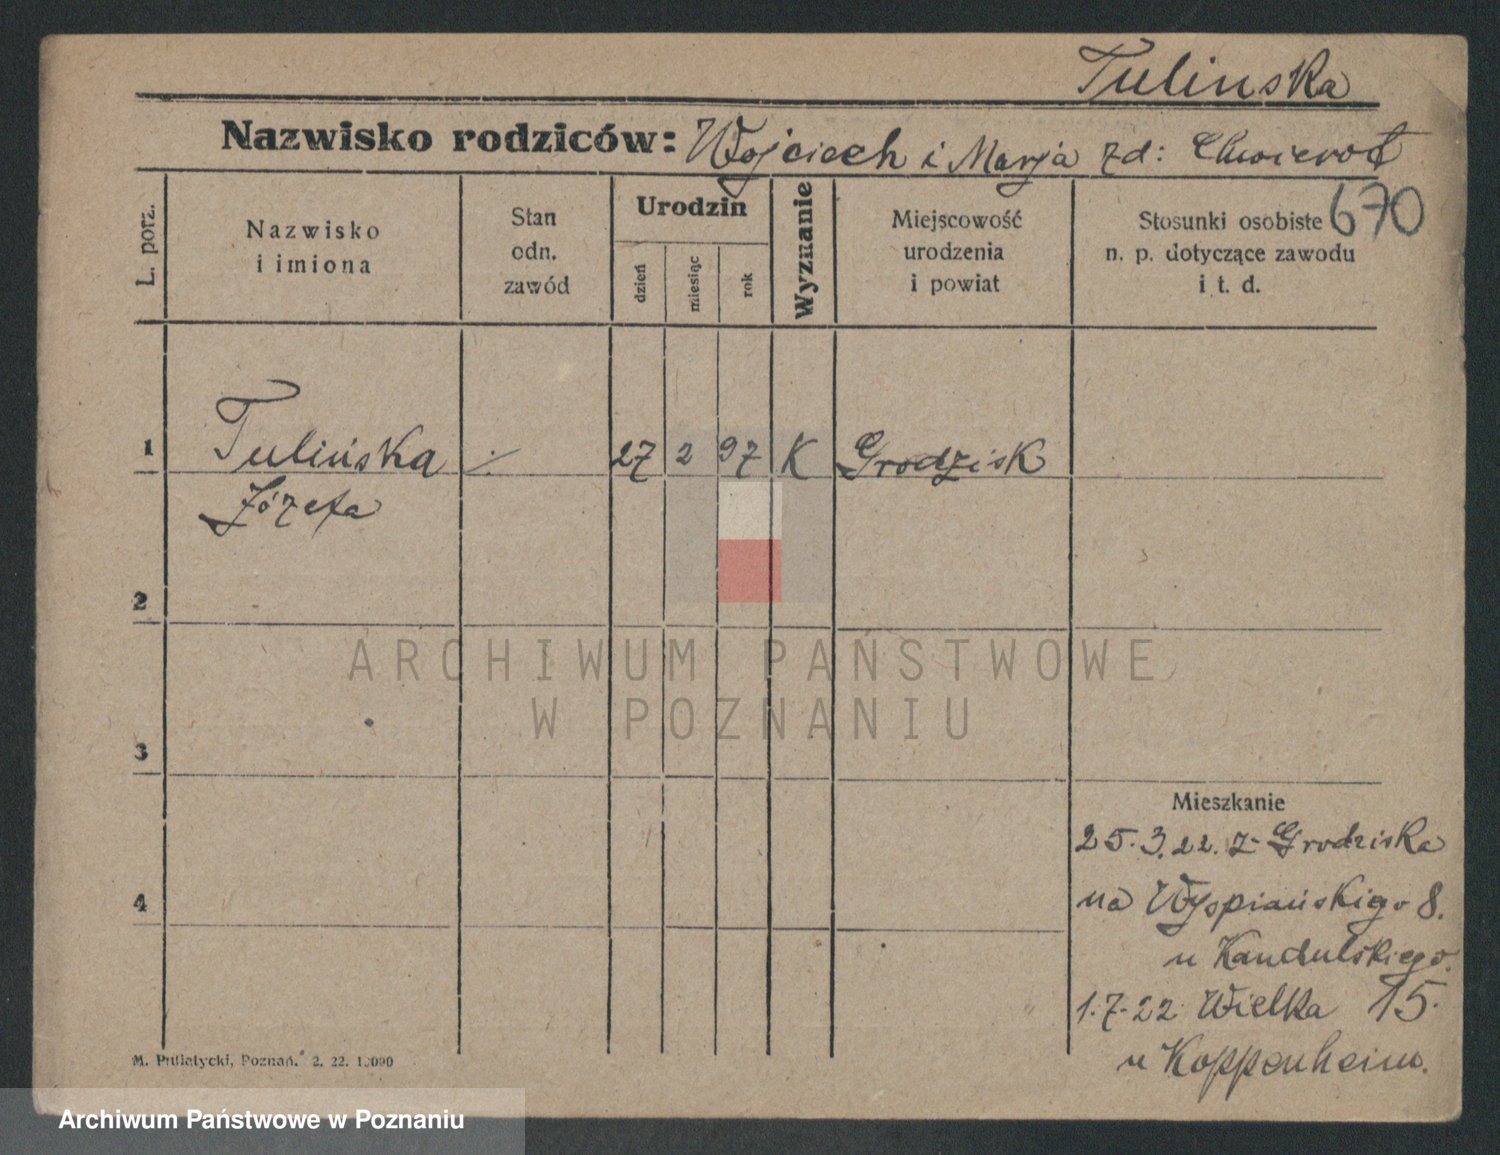 Tulinska
Nazwisko rodziców: Wojciech i Marja zd: Chwierot
670
L. porz.
Nazwisko
i imiona
Stan
odn.
zawód
Urodzin
dzień
miesiąc
rok
Wyznanie
Miejscowość
urodzenia
i powiat
Stosunki osobiste
n. p. dotyczące zawodu
i t. d.
1 Tulińska 27 2 97 K Grodzisk
Józefa
2
ARCHIWUM PAŃSTWOWE
W POZNANIU
3
Mieszkanie
25.3.22. z Grodziska
4
na Wyspiańskiego 8.
u Kandulskiego.
1.7.22 Wielka 15.
u Koppenheim.
M. Putiatycki, Poznań. 2. 22. 10000
Archiwum Państwowe w Poznaniu